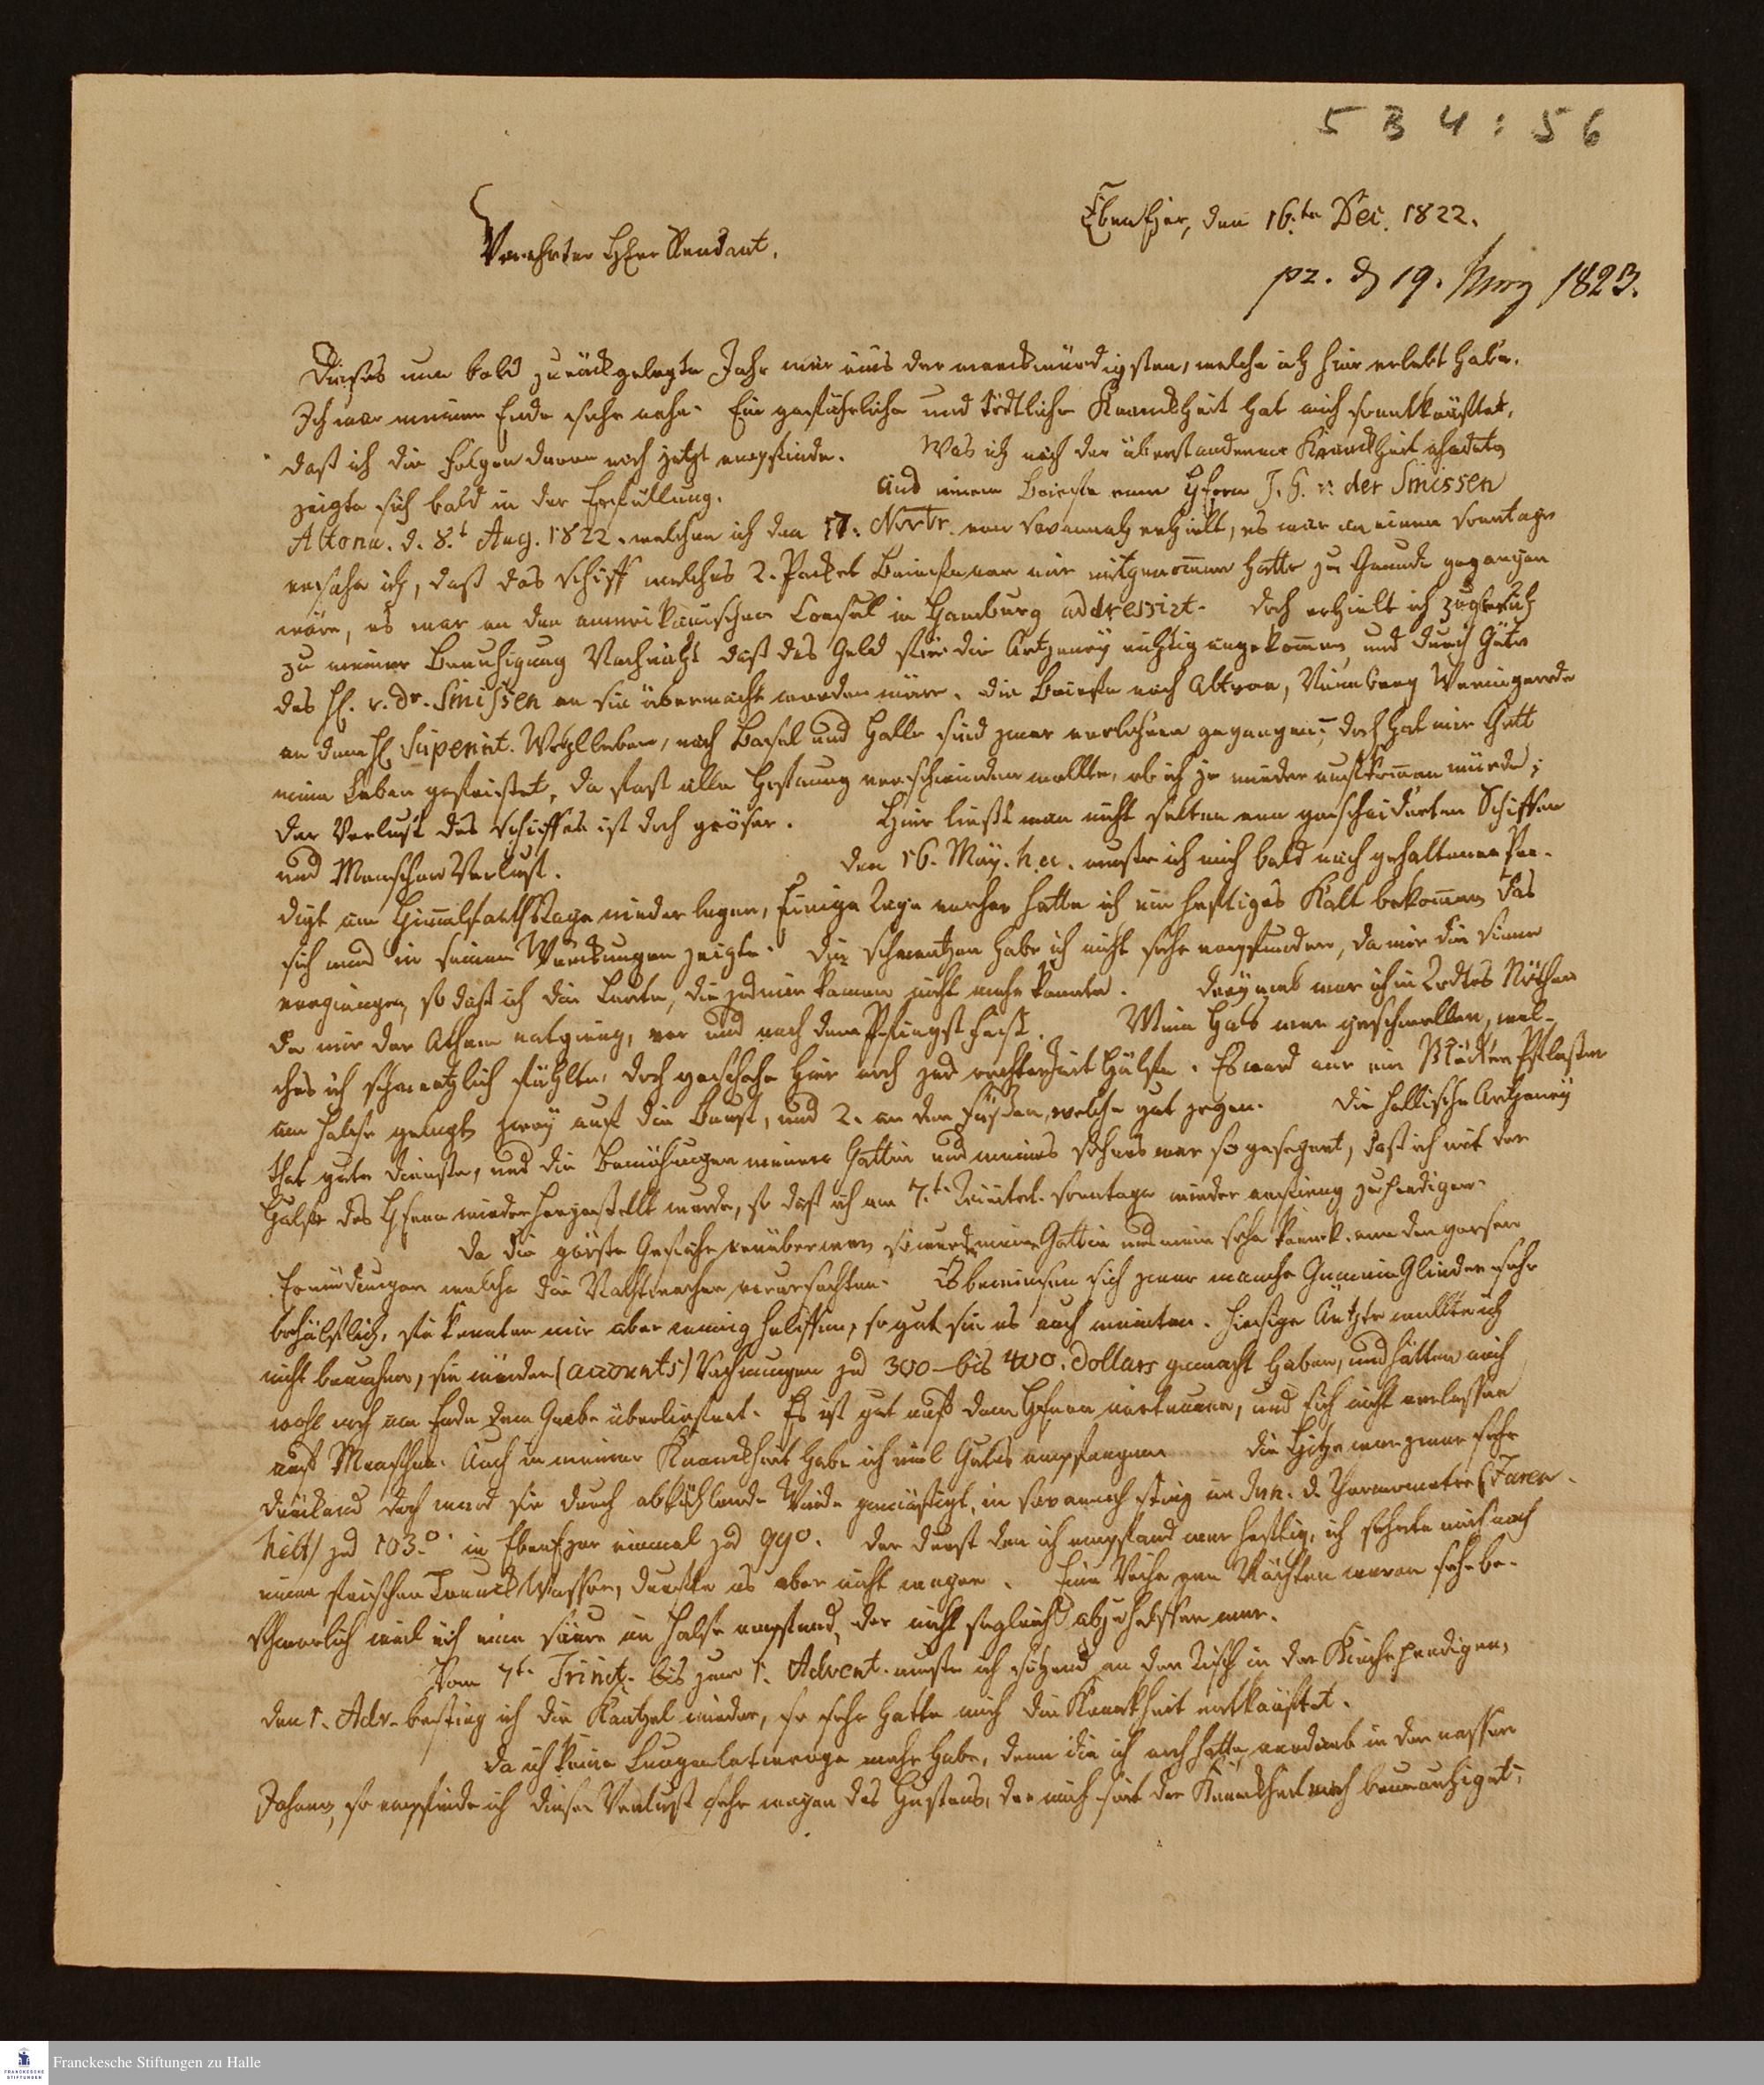 534:56
Ebenezer, den 16.ten Dec. 1822.
Verehrter HErr Rendant.
pz. d 19. März 1823.
Dieses nun bald zurückgelegte Jahr war eins der merckwürdigsten, welche ich hier erlebt habe.
Ich war meinem Ende sehr nahe. Eine gefährliche und tödtliche Kranckheit hat mich so entkräftet,
daß ich die Folgen davon noch jetzt empfinde. Was ich nach der überstandenen Kranckheit ahndete
zeigte sich bald in der Erfüllung. Aus einem Briefe vom HErrn J. G. v. der Smissen
Altona. d. 8.t Aug. 1822. welchen ich den 17. Novbr. von Savannah erhielt, es war an einem Sonntage
ersahe ich, daß das Schiff welches 2. Packet Briefe von mir mitgenommen hatte zu Grunde gegangen
wäre, es war an den amerikanischen Consul in Hamburg addressirt. Doch erhielt ich zugleich
zu meiner Beruhigung Nachricht daß das Geld für die Artzeney richtig angekommen, und durch Güte
des H. v. dr. Smissen an Sie übermacht worden wäre. Die Briefe nach Altona, Nürnberg Wernigerode
an den H. Superint. nach Basel und Halle sind zwar verlohren gegangen; doch hat mir Gott
mein Leben gefristet, da fast alle Hoffnung verschwinden wollte, ob ich je wieder aufkommen würde;
der Verlust des Schiffes ist doch größer. Hier ließt man nicht selten von gescheiderten Schiffen
und Menschen Verlust. Den 16. May. h. a. muste ich mich bald nach gehaltener Pre-
digt am Himmelfarthstage nieder legen, Einige Tage vorher hatte ich ein heftiges Kalt bekommen das
sich nun in seinen Würckungen zeigte. Die Schmertzen habe ich nicht sehr empfunden, da mir die Sinne
vergiengen, so daß ich die Leute, die zu mir kamen nicht mehr kannte. Dreymal war ich in Todtes Nöthen
da mir der Athem entgieng, vor und nach dem Pfingst Fest. Mein Hals war geschwollen, wel-
ches ich schmertzlich fühlte, doch geschahe hier noch zu rechter Zeit Hülfe. Es ward mir ein Pflaster
am Halse gelegt, zwey auf die Brust, und 2. an den Füßen, welche gut zogen. Die Hallische Artzeney
that gute Dienste, und die Bemühungen meiner Gattin und meines Sohnes war so gesegnet, daß ich mit der
Hülfe des HErrn wieder hergestellt wurde, so daß ich am 7.t Trinitat. Sonntage wieder anfieng zu predigen.
Da die gröste Gefahr vorüber war so wurde meine Gattin und mein Sohn kranck. von den grosen
Ermüdungen welche die Nachtwachen verursachten. Es bewiesen sich zwar manche Gemein Glieder sehr
behülflich, sie konnten mir aber wenig helffen, so gut sie es auch meinten. Hiesige Äntzte wollte ich
nicht brauchen, sie würden (accounts) Rechnungen zu 300 - bis 400. Dollars gemacht haben, und hätten mich
wohl noch am Ende dem Grabe überliefert. Es ist gut auf den HErrn vertrauen, und sich nicht verlassen
auf Menschen. Auch in meiner Kranckheit habe ich viel Gutes empfangen. Die Hitze war zwar sehr
drückend doch ward sie durch abkühlende Winde gemäßigt, in Savannah stieg im Jun. d. Thermometre (Faren-
heit) zu 103.° in Ebenezer einmal zu 99°. Der Durst den ich empfand war heftig, ich sehnte mich nach
einen frischen Trunck Wasser, durfte es aber nicht wagen. Eine Reihe von Nächten waren sehr be-
schwerlich weil ich eine Säure im Halse empfand, der nicht sogleich abzuhelffen war.
Vom 7t. Trinit. bis zum 1. Advent. muste ich sitzend an den Tisch in der Kirche predigen,
den 1. Adv. bestieg ich die Kantzel wieder, so sehr hatte mich die Kranckheit entkräftet.
Da ich keine Lungenlatwerge mehr habe, denn die ich noch hatte verdarb in den nassen
Jahren, so empfinde ich diesen Verlust sehr wegen des Hustens, der mich seit der Kranckheit noch beunruhiget;
Franckesche Stiftungen zu Halle